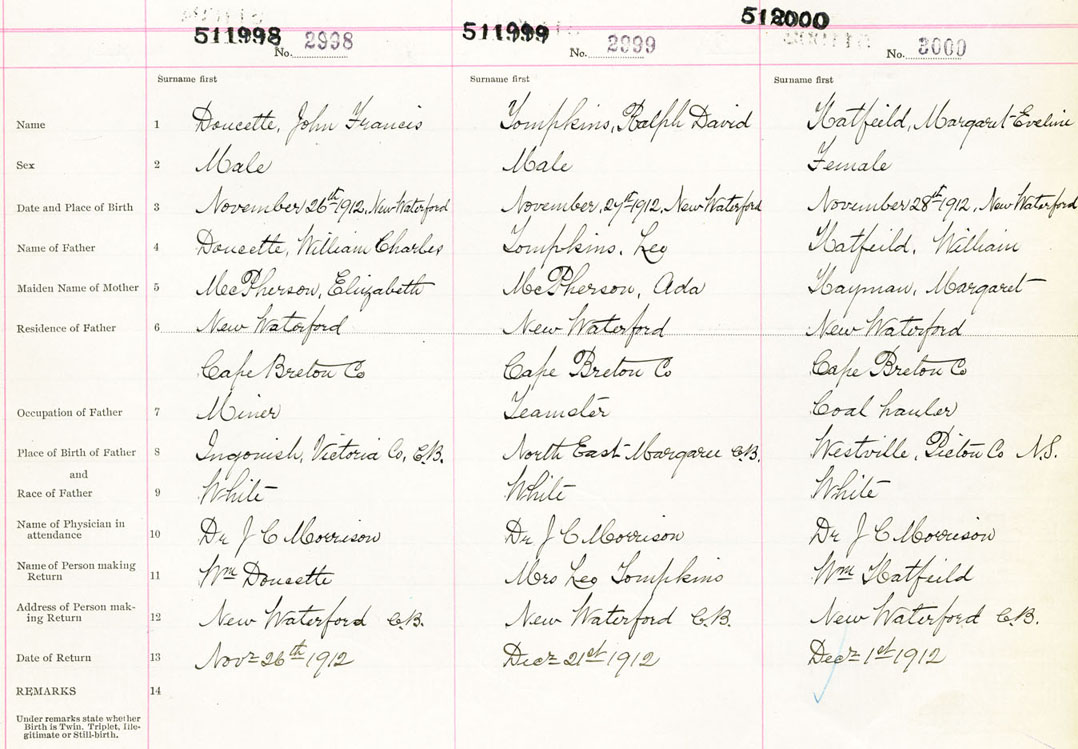 511998 511999 512000
No. 2998 No. 2999 No. 3000
Surname first Surname first Surname first
Name 1 Doucette, John Francis Tompkins, Ralph David Hatfeild, Margaret Eveline
Sex 2 Male Male Female
Date and Place of Birth 3 November 26th 1912, New Waterford November, 27th 1912, New Waterford November 28th 1912, New Waterford
Name of Father 4 Doucette, William Charles Tompkins, Leo Hatfeild, William
Maiden Name of Mother 5 McPherson, Elizabeth McPherson, Ada Hayman, Margaret
Residence of Father 6 New Waterford New Waterford New Waterford
Cape Breton Co Cape Breton Co Cape Breton Co
Occupation of Father 7 Miner Teamster Coal hauler
Place of Birth of Father 8 Ingonish, Victoria Co, C.B. North East Margaree C.B. Westville, Pictou Co N.S.
and
Race of Father 9 White White White
Name of Physician in
attendance 10 Dr J C Morrison Dr J C Morrison Dr J C Morrison
Name of Person making
Return 11 Wm Doucette Mrs Leo Tompkins Wm Hatfeild
Address of Person mak-
ing Return 12 New Waterford C.B. New Waterford C.B. New Waterford C.B.
Date of Return 13 Novr 26th 1912 Decr 21st 1912 Decr 1st 1912
REMARKS 14
Under remarks state whether
Birth is Twin. Triplet, Ille-
gitimate or Still-birth.